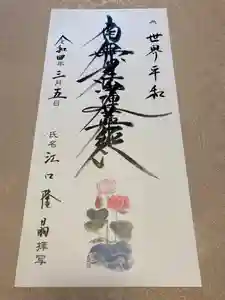 為 世界平和
南無妙法蓮華経
令和四年三月五日
氏名 江口隆
拝写